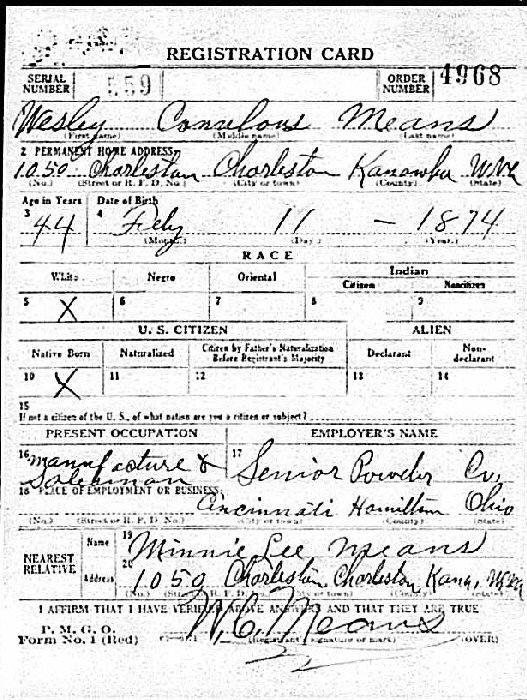 REGISTRATION CARD
SERIAL NUMBER 559 ORDER NUMBER 4968
Wesley Cornelous Means
(First name) (Middle name) (Last name)
2 PERMANENT HOME ADDRESS:
1050 Charleston Charleston Kanawha W.Va
(No.) (Street or R. F. D. No.) (City or town) (County) (State)
Age in Years Date of Birth
3 44 4 Feby 11 - 1874
(Month.) (Day.) (Year.)
RACE
White Negro Oriental Indian
Citizen Noncitizen
5 X 6 7 8 9
U. S. CITIZEN ALIEN
Native Born Naturalized Citizen by Father's Naturalization Before Registrant's Majority Declarant Non-declarant
10 X 11 12 13 14
15
If not a citizen of the U. S., of what nation are you a citizen or subject?
PRESENT OCCUPATION EMPLOYER'S NAME
16 Manufacture & Salesman 17 Senior Powder Co,
18 PLACE OF EMPLOYMENT OR BUSINESS:
Cincinnati Hamilton Ohio
(No.) (Street or R. F. D. No.) (City or town) (County) (State)
NEAREST RELATIVE
Name 19 Minnie Lee Means
Address 20 1050 Charleston Charleston Kana, W.Va
(No.) (Street or R. F. D. No.) (City or town) (County) (State)
I AFFIRM THAT I HAVE VERIFIED ABOVE ANSWERS AND THAT THEY ARE TRUE
P. M. G. O.
Form No. 1 (Red) W. C. Means
(Registrant's signature or mark) (OVER)